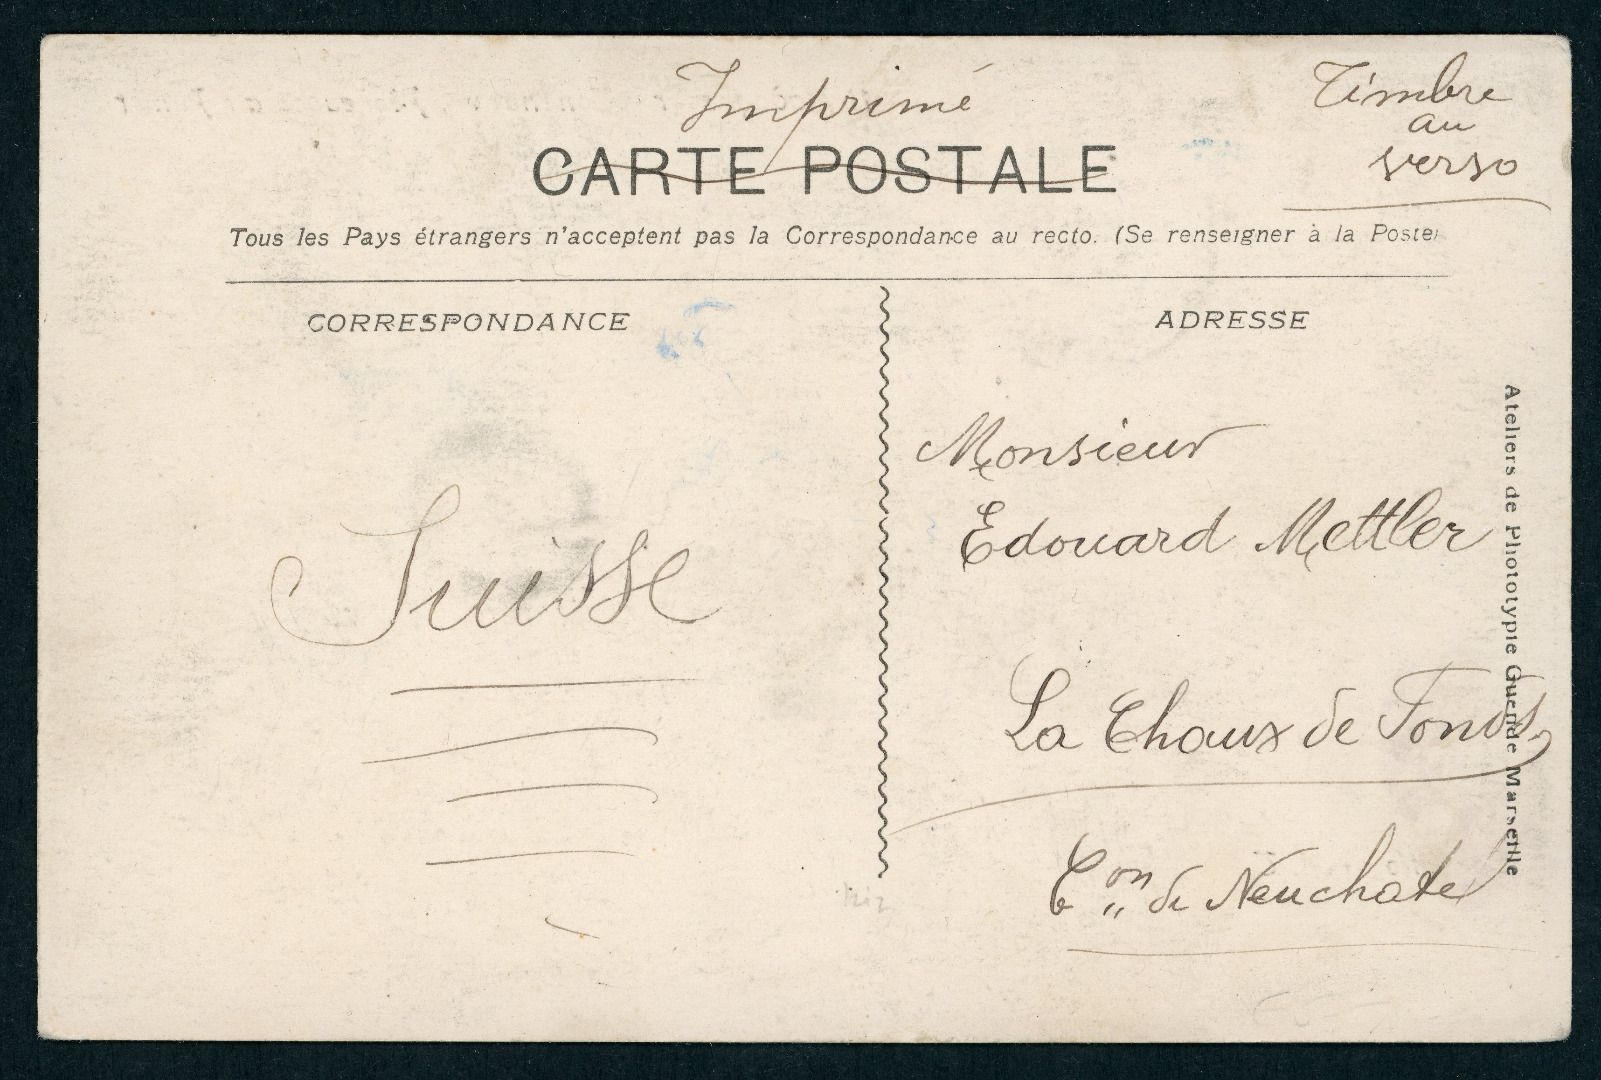 Imprimé
Timbre
au
verso
CARTE POSTALE
Tous les Pays étrangers n'acceptent pas la Correspondance au recto. (Se renseigner à la Poste)
CORRESPONDANCE
ADRESSE
Suisse
Monsieur
Edouard Mettler
La Chaux de Fonds,
Con de Neuchatel
Ateliers de Phototypie Guende Marseille